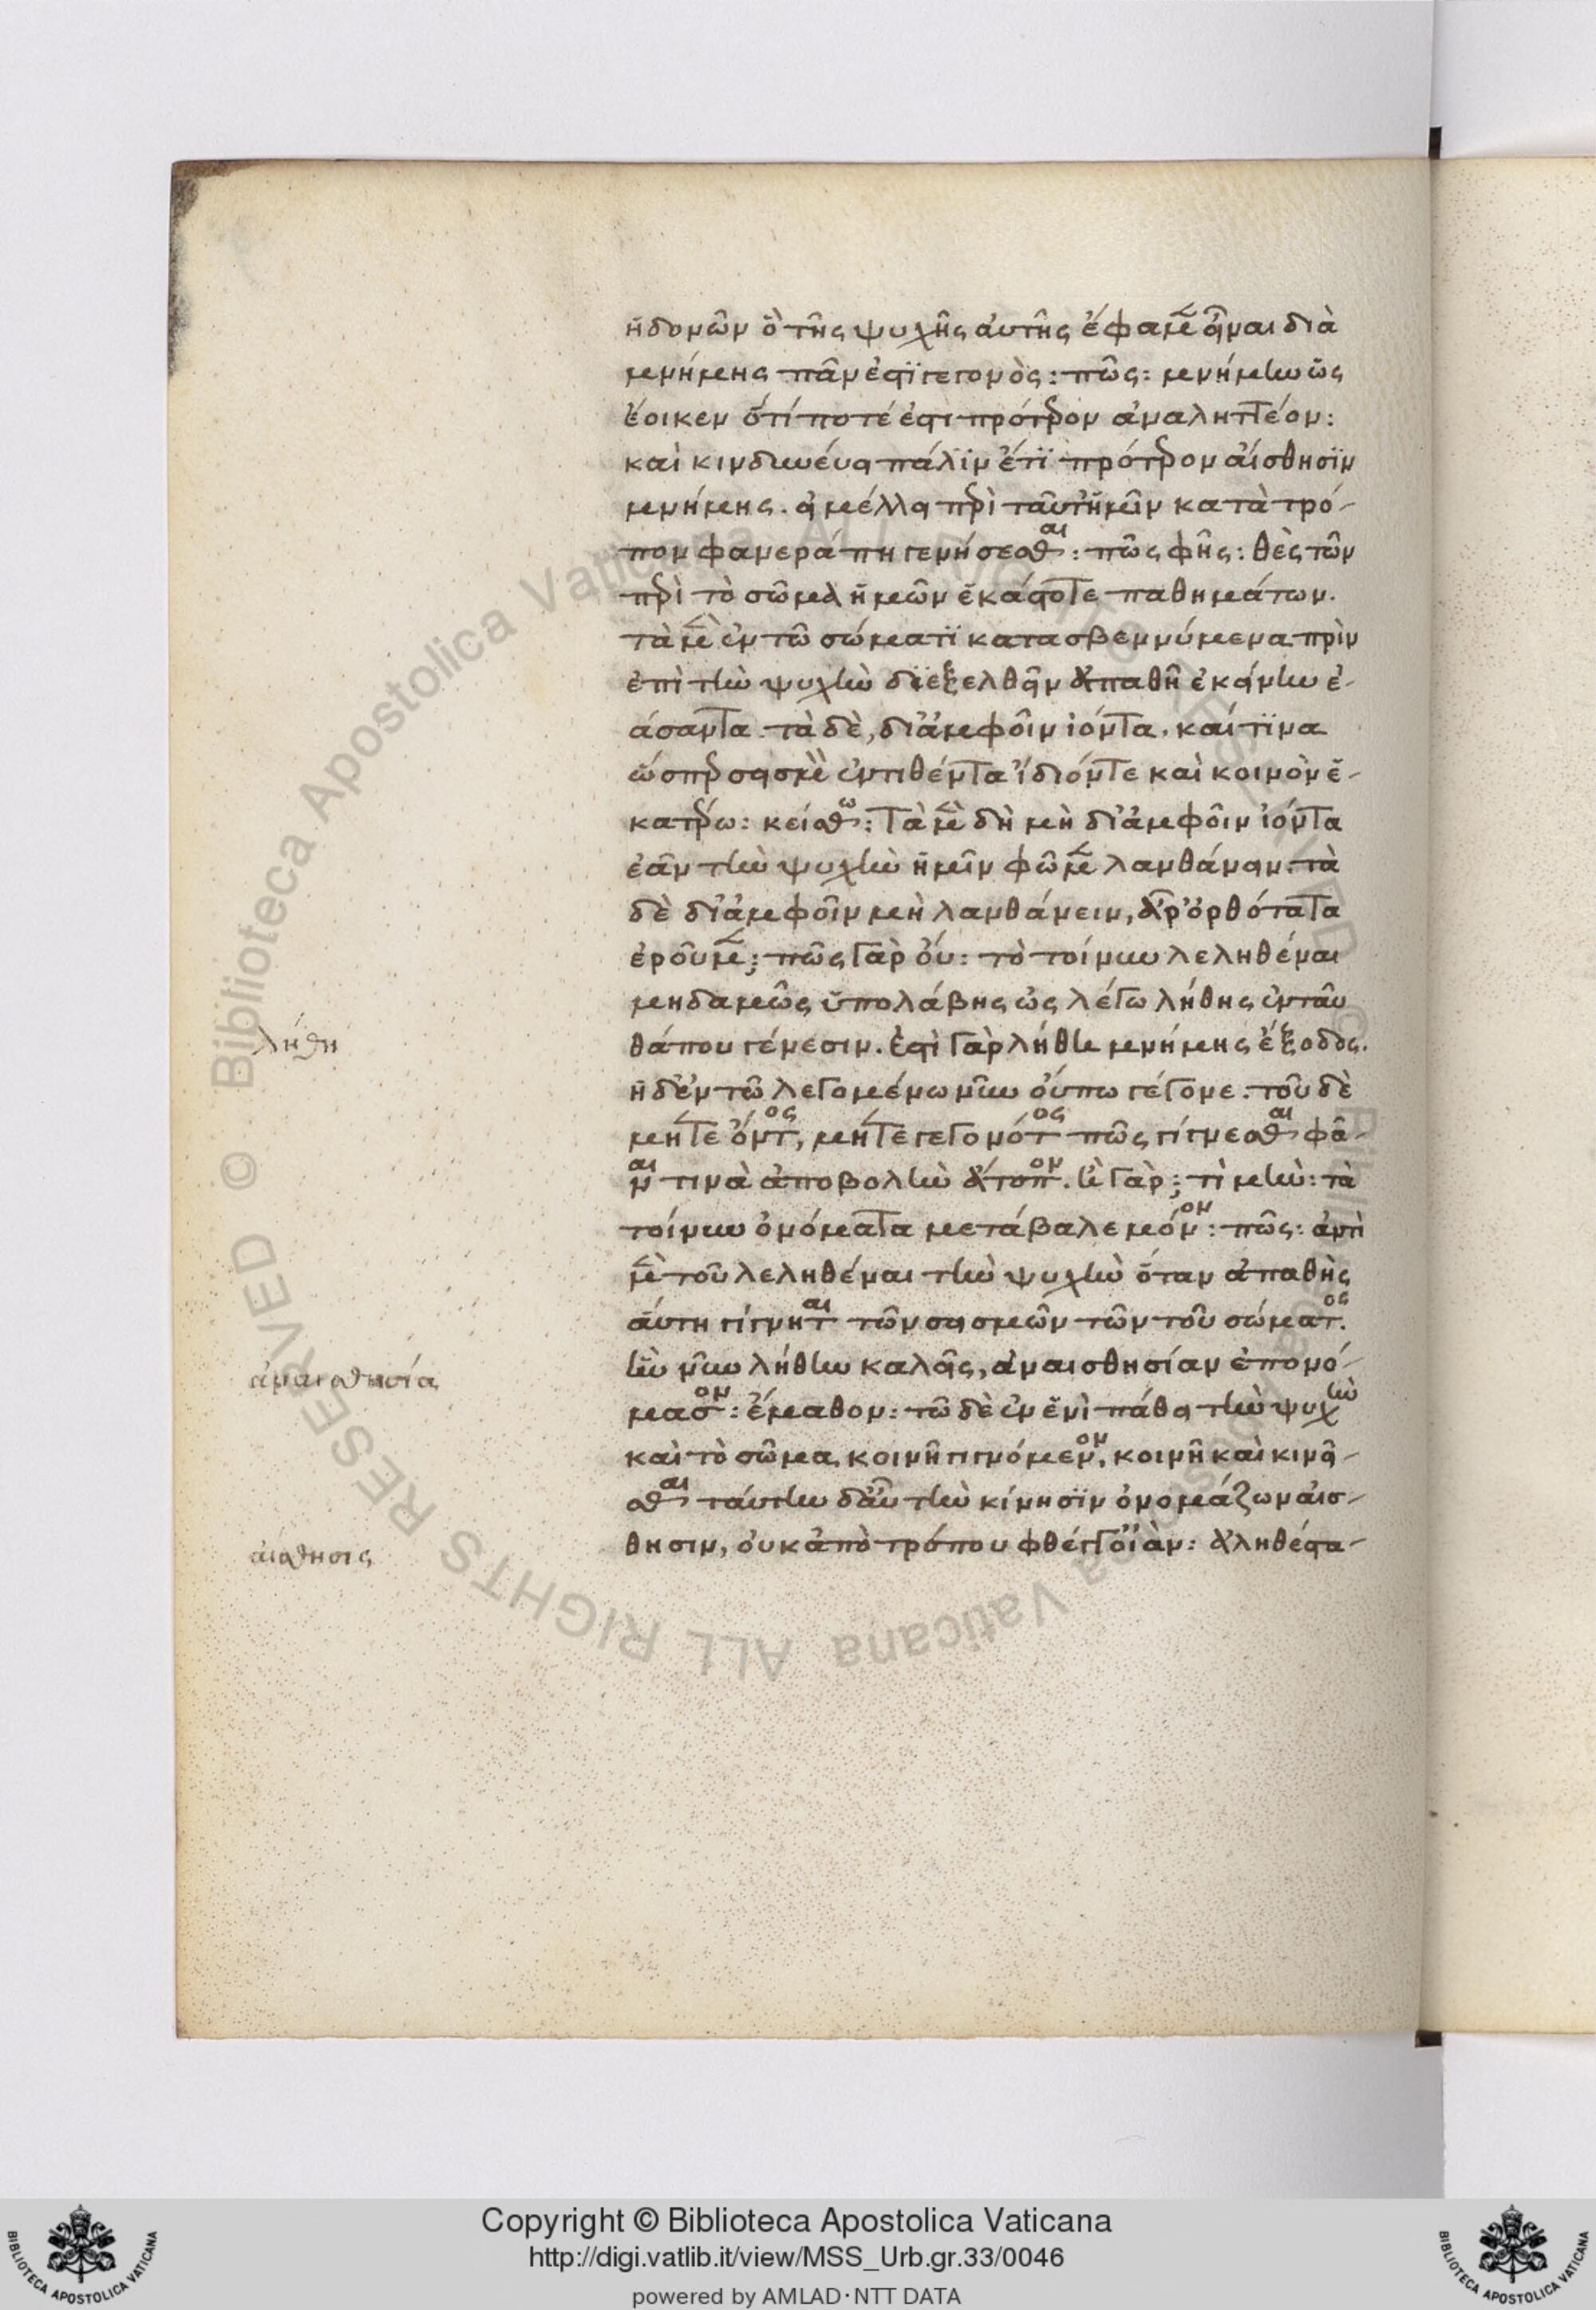 ἡδονῶν ὃ τῆς ψυχῆς αὐτῆς ἔφαμεν εἶναι διὰ
μνήμης πᾶν ἐστι γεγονός: πῶς: μνήμην ὡς
ἔοικεν ὅτί ποτέ ἐστι πρότερον ἀναληπτέον:
καὶ κινδυνεύει πάλιν ἔτι πρότερον αἴσθησιν
μνήμης. εἰ μέλλει περὶ ταῦθ' ἡμῖν κατὰ τρό-
πον φανερά πη γενήσεσθαι: πῶς φῇς: θὲς τῶν
περὶ τὸ σῶμα ἡμῶν ἑκάστοτε παθημάτων.
τὰ μὲν ἐν τῷ σώματι κατασβεννύμενα πρὶν
ἐπὶ τὴν ψυχὴν διεξελθεῖν ἀπαθῆ ἐκείνην ἐ-
άσαντα. τὰ δὲ, δι' ἀμφοῖν ἰόντα. καί τινα
ὥσπερ σεισμὸν ἐντιθέντα ἴδιόν τε καὶ κοινὸν ἑ-
κατέρω: κείσθω: τὰ μὲν δὴ μὴ δι' ἀμφοῖν ἰόντα
ἐὰν τὴν ψυχὴν ἡμῶν φῶμεν λανθάνειν. τὰ
δὲ δι' ἀμφοῖν μὴ λανθάνειν, ἆρ' ὀρθότατα
ἐροῦμεν; πῶς γὰρ οὔ: τὸ τοίνυν λεληθέναι
μηδαμῶς ὑπολάβης ὡς λέγω λήθης ἐνταῦ
θά που γένεσιν. ἔστι γὰρ λήθη μνήμης ἔξοδος.
ἡ δ' ἐν τῷ λεγομένω νῦν οὔπω γέγονε. τοῦ δὲ
μήτε ὄντος, μήτε γεγονότος πῶς γίγνεσθαι φά-
ναι τινὰ ἀποβολὴν ἄτοπον. ἦ γάρ; τί μήν: τὰ
τοίνυν ὀνόματα μετάβαλε μόνον: πῶς: ἀντὶ
μὲν τοῦ λεληθέναι τὴν ψυχὴν ὅταν ἀπαθὴς
αὕτη γίγνηται τῶν σεισμῶν τῶν τοῦ σώματος.
ἣν νῦν λήθην καλεῖς, ἀναισθησίαν ἐπονό-
μασον: ἔμαθον: τὸ δὲ ἐν ἑνὶ πάθει τὴν ψυχὴν
καὶ τὸ σῶμα κοινῇ γιγνόμενον, κοινῇ καὶ κινεῖ-
σθαι ταύτην δ' αὖ τὴν κίνησιν ὀνομάζων αἴσ-
θησιν, οὐκ ἀπὸ τρόπου φθέγγοι' ἄν: ἀληθέστα-
λήθη
ἀναισθησία
αἴσθησις
Copyright © Biblioteca Apostolica Vaticana
http://digi.vatlib.it/view/MSS_Urb.gr.33/0046
powered by AMLAD·NTT DATA